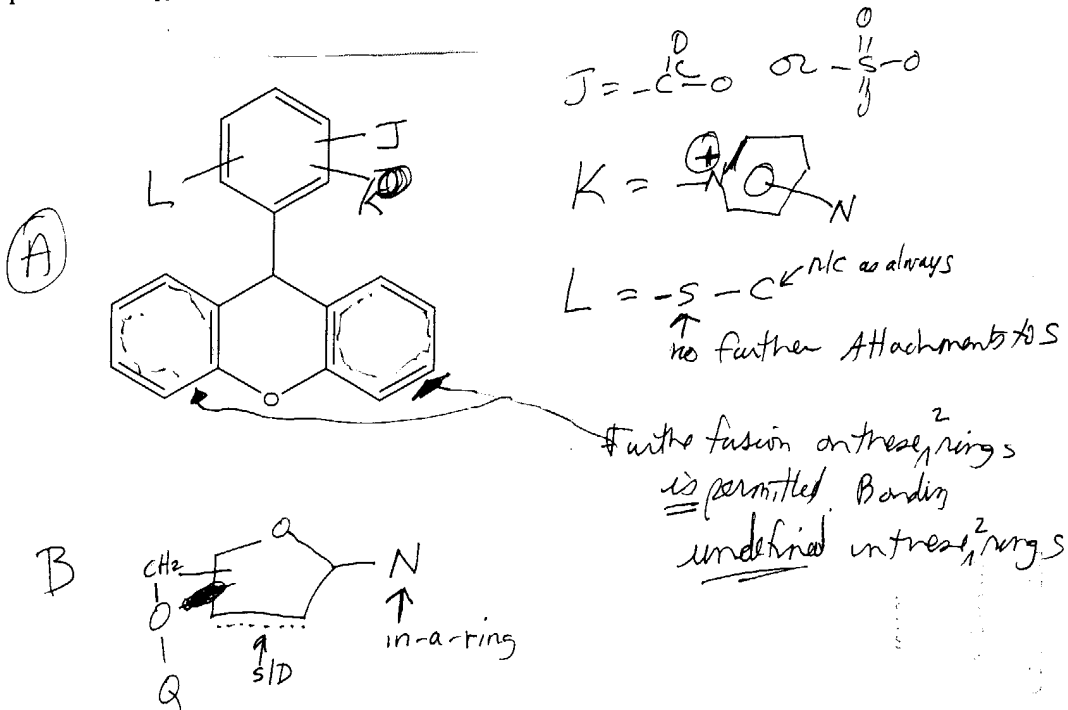 J = -C-O or -S-O
O
O
O
J
L
K
K = -N
+
N
A
L = -S-C n/c as always
no further Attachments to S
O
Further fusion on these 2 rings
is permitted. Bonding
undefined in these 2 rings
B
CH2
O
N
O
in-a-ring
S/D
Q